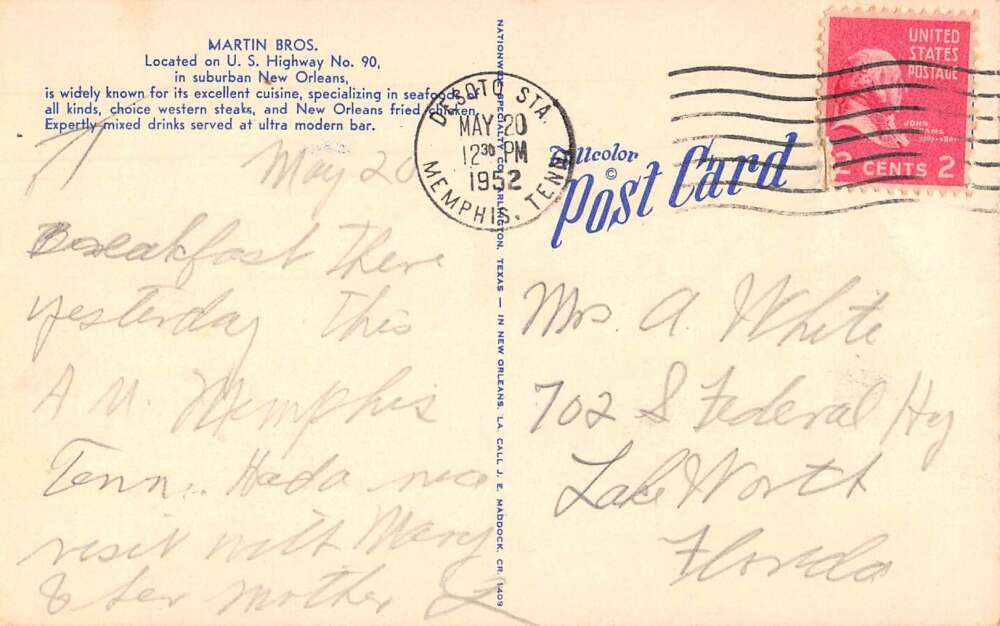 MARTIN BROS.
Located on U. S. Highway No. 90,
in suburban New Orleans,
is widely known for its excellent cuisine, specializing in seafoods of
all kinds, choice western steaks, and New Orleans fried chicken.
Expertly mixed drinks served at ultra modern bar.
May 20
Breakfast there
yesterday This
A M. Memphis
Tenn. Had a nice
visit with Mary
& her mother
NATIONWIDE SPECIALTY CO., ARLINGTON, TEXAS — IN NEW ORLEANS, LA. CALL J. E. MADDOCK, CR. 1409
DESOTO STA.
MAY 20
12 30 PM
1952
MEMPHIS, TENN.
UNITED
STATES
POSTAGE
JOHN
ADAMS
2 CENTS 2
Tellcolor
©
Post Card
Mrs A White
702 S Federal Hy
Lake Worth
Florida